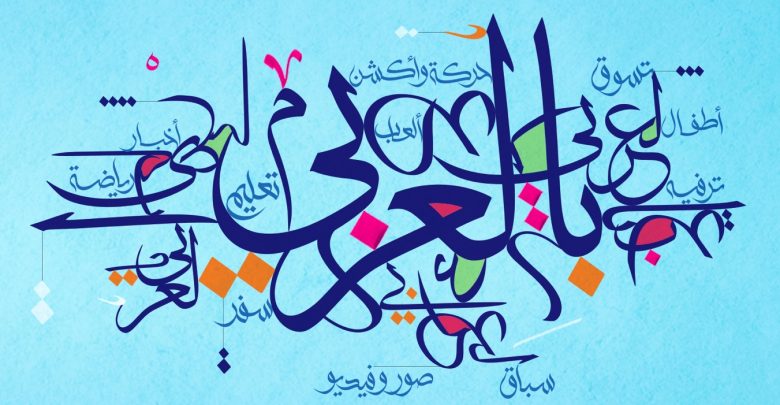 حركة وأكشن
تسوق
أطفال
ألعاب
أخبار
رياضة
تعليم
ترفيه
بالعربي
عربي
سفر
سباق
صور وفيديو